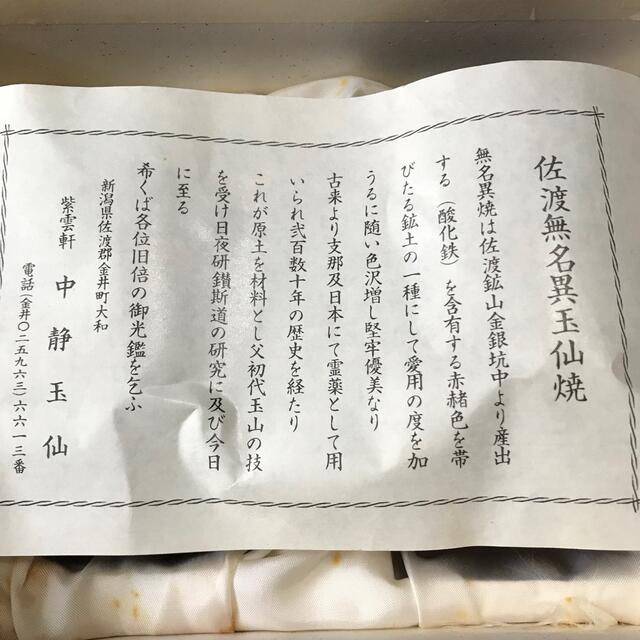 佐渡無名異玉仙焼
無名異焼は佐渡鉱山金銀坑中より産出
する（酸化鉄）を含有する赤赭色を帯
びたる鉱土の一種にして愛用の度を加
うるに随い色沢増し堅牢優美なり
古来より支那及日本にて霊薬として用
いられ弐百数十年の歴史を経たり
これが原土を材料とし父初代玉山の技
を受け日夜研鑚斯道の研究に及び今日
に至る
希くば各位旧倍の御光鑑を乞ふ
新潟県佐渡郡金井町大和
紫雲軒 中静玉仙
電話（金井〇二五九六三）六六一三番